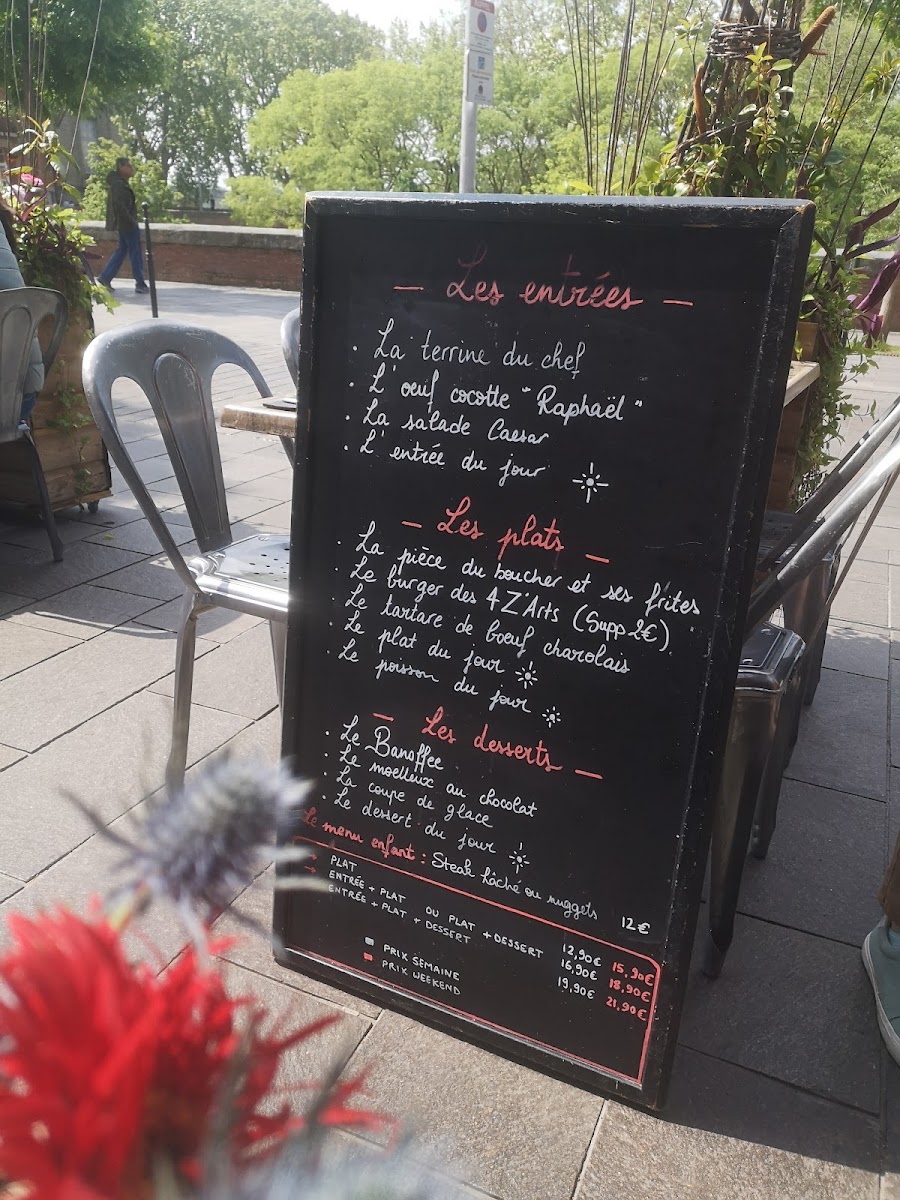 — Les entrées —
· La terrine du chef
· L'oeuf cocotte "Raphaël"
· La salade Caesar
· L'entrée du jour
— Les plats —
· La pièce du boucher et ses frites
· Le burger des 4 Z'Arts (Supp 2€)
· Le tartare de boeuf charolais
· Le plat du jour
· Le poisson du jour
— Les desserts —
· Le Banoffee
· Le moelleux au chocolat
· La coupe de glace
· Le dessert du jour
Le menu enfant : Steak hâché ou nuggets 12€
PLAT 12,90€ 15,90€
ENTRÉE + PLAT OU PLAT + DESSERT 16,90€ 18,90€
ENTRÉE + PLAT + DESSERT 19,90€ 21,90€
PRIX SEMAINE
PRIX WEEKEND